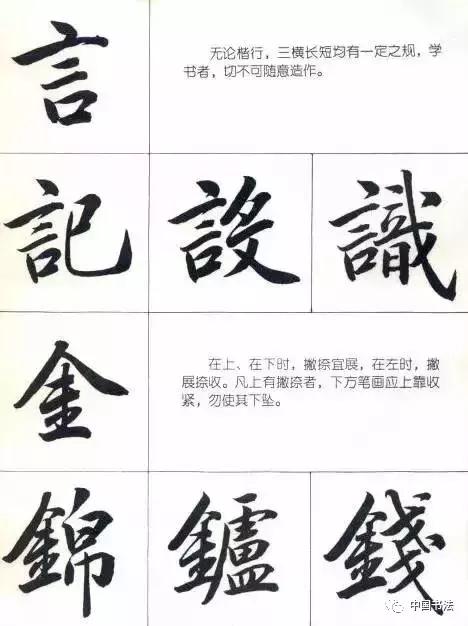 言
无论楷行，三横长短均有一定之规，学
书者，切不可随意造作。
記 設 識
金
在上、在下时，撇捺宜展，在左时，撇
展捺收。凡上有撇捺者，下方笔画应上靠收
紧，勿使其下坠。
錦 鑪 錢
中国书法